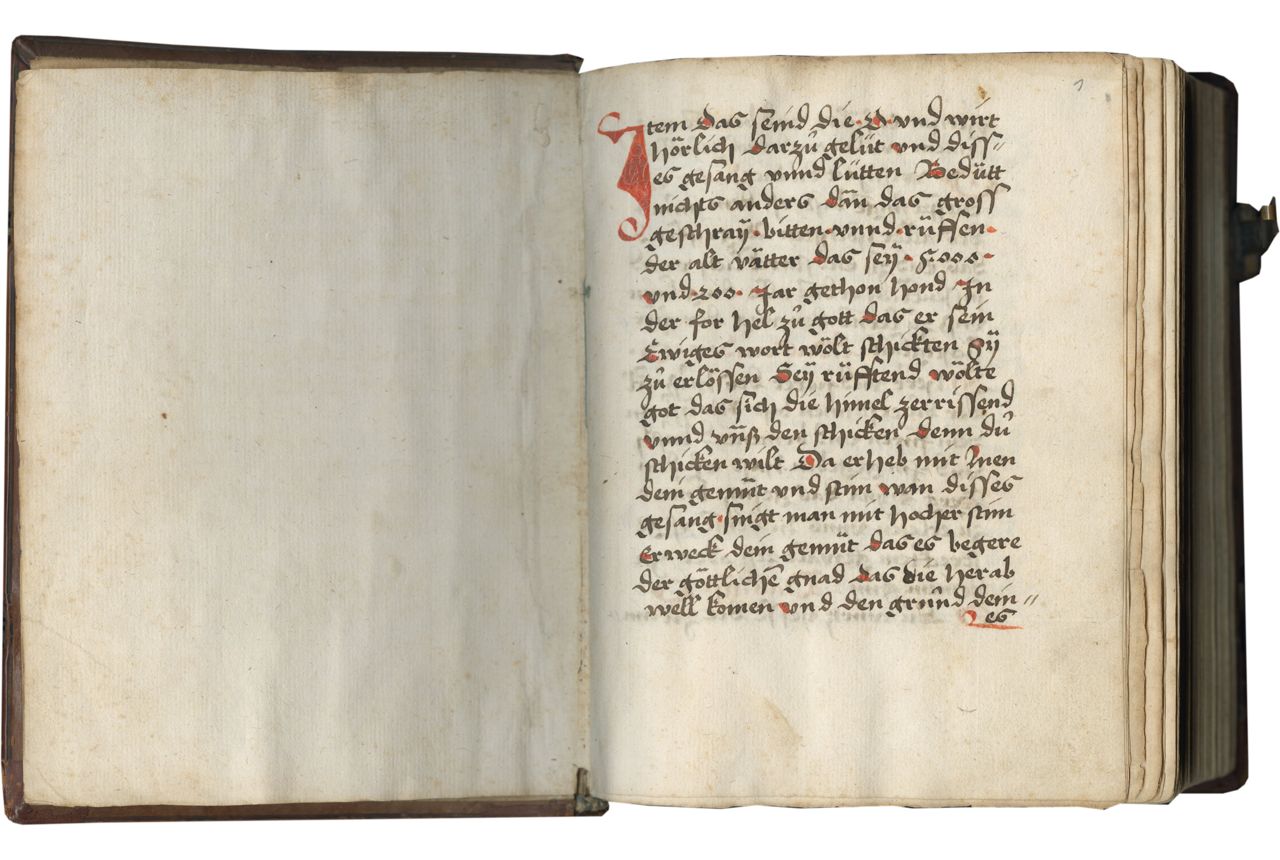 1
Item das seind die · O · vnd wirt
hörlich darzů gelüt vnd diss-
es gesang vnnd lütten Bedütt
nichts anders dän das gross
geschraÿ · bitten · vnnd · rüffen ·
der alt vätter das seÿ · 5000 ·
vnd · 200 · Jar gethon hond In
der for hel zů gott das er sein
Ewiges wort wölt schickten Sÿ
zů erlössen Seÿ rüfftend wölte
got das sich die himel zerrissend
vnnd vn̄ß den schicken denn dů
schicken wilt Da erheb mit Inen
dein gemüt vnd stim wan disses
gesang · singt man mit hocher stim
Erweck dein gemüt das es begere
der göttlichē gnad das die herab
well komen vnd den grůnd dein-
es